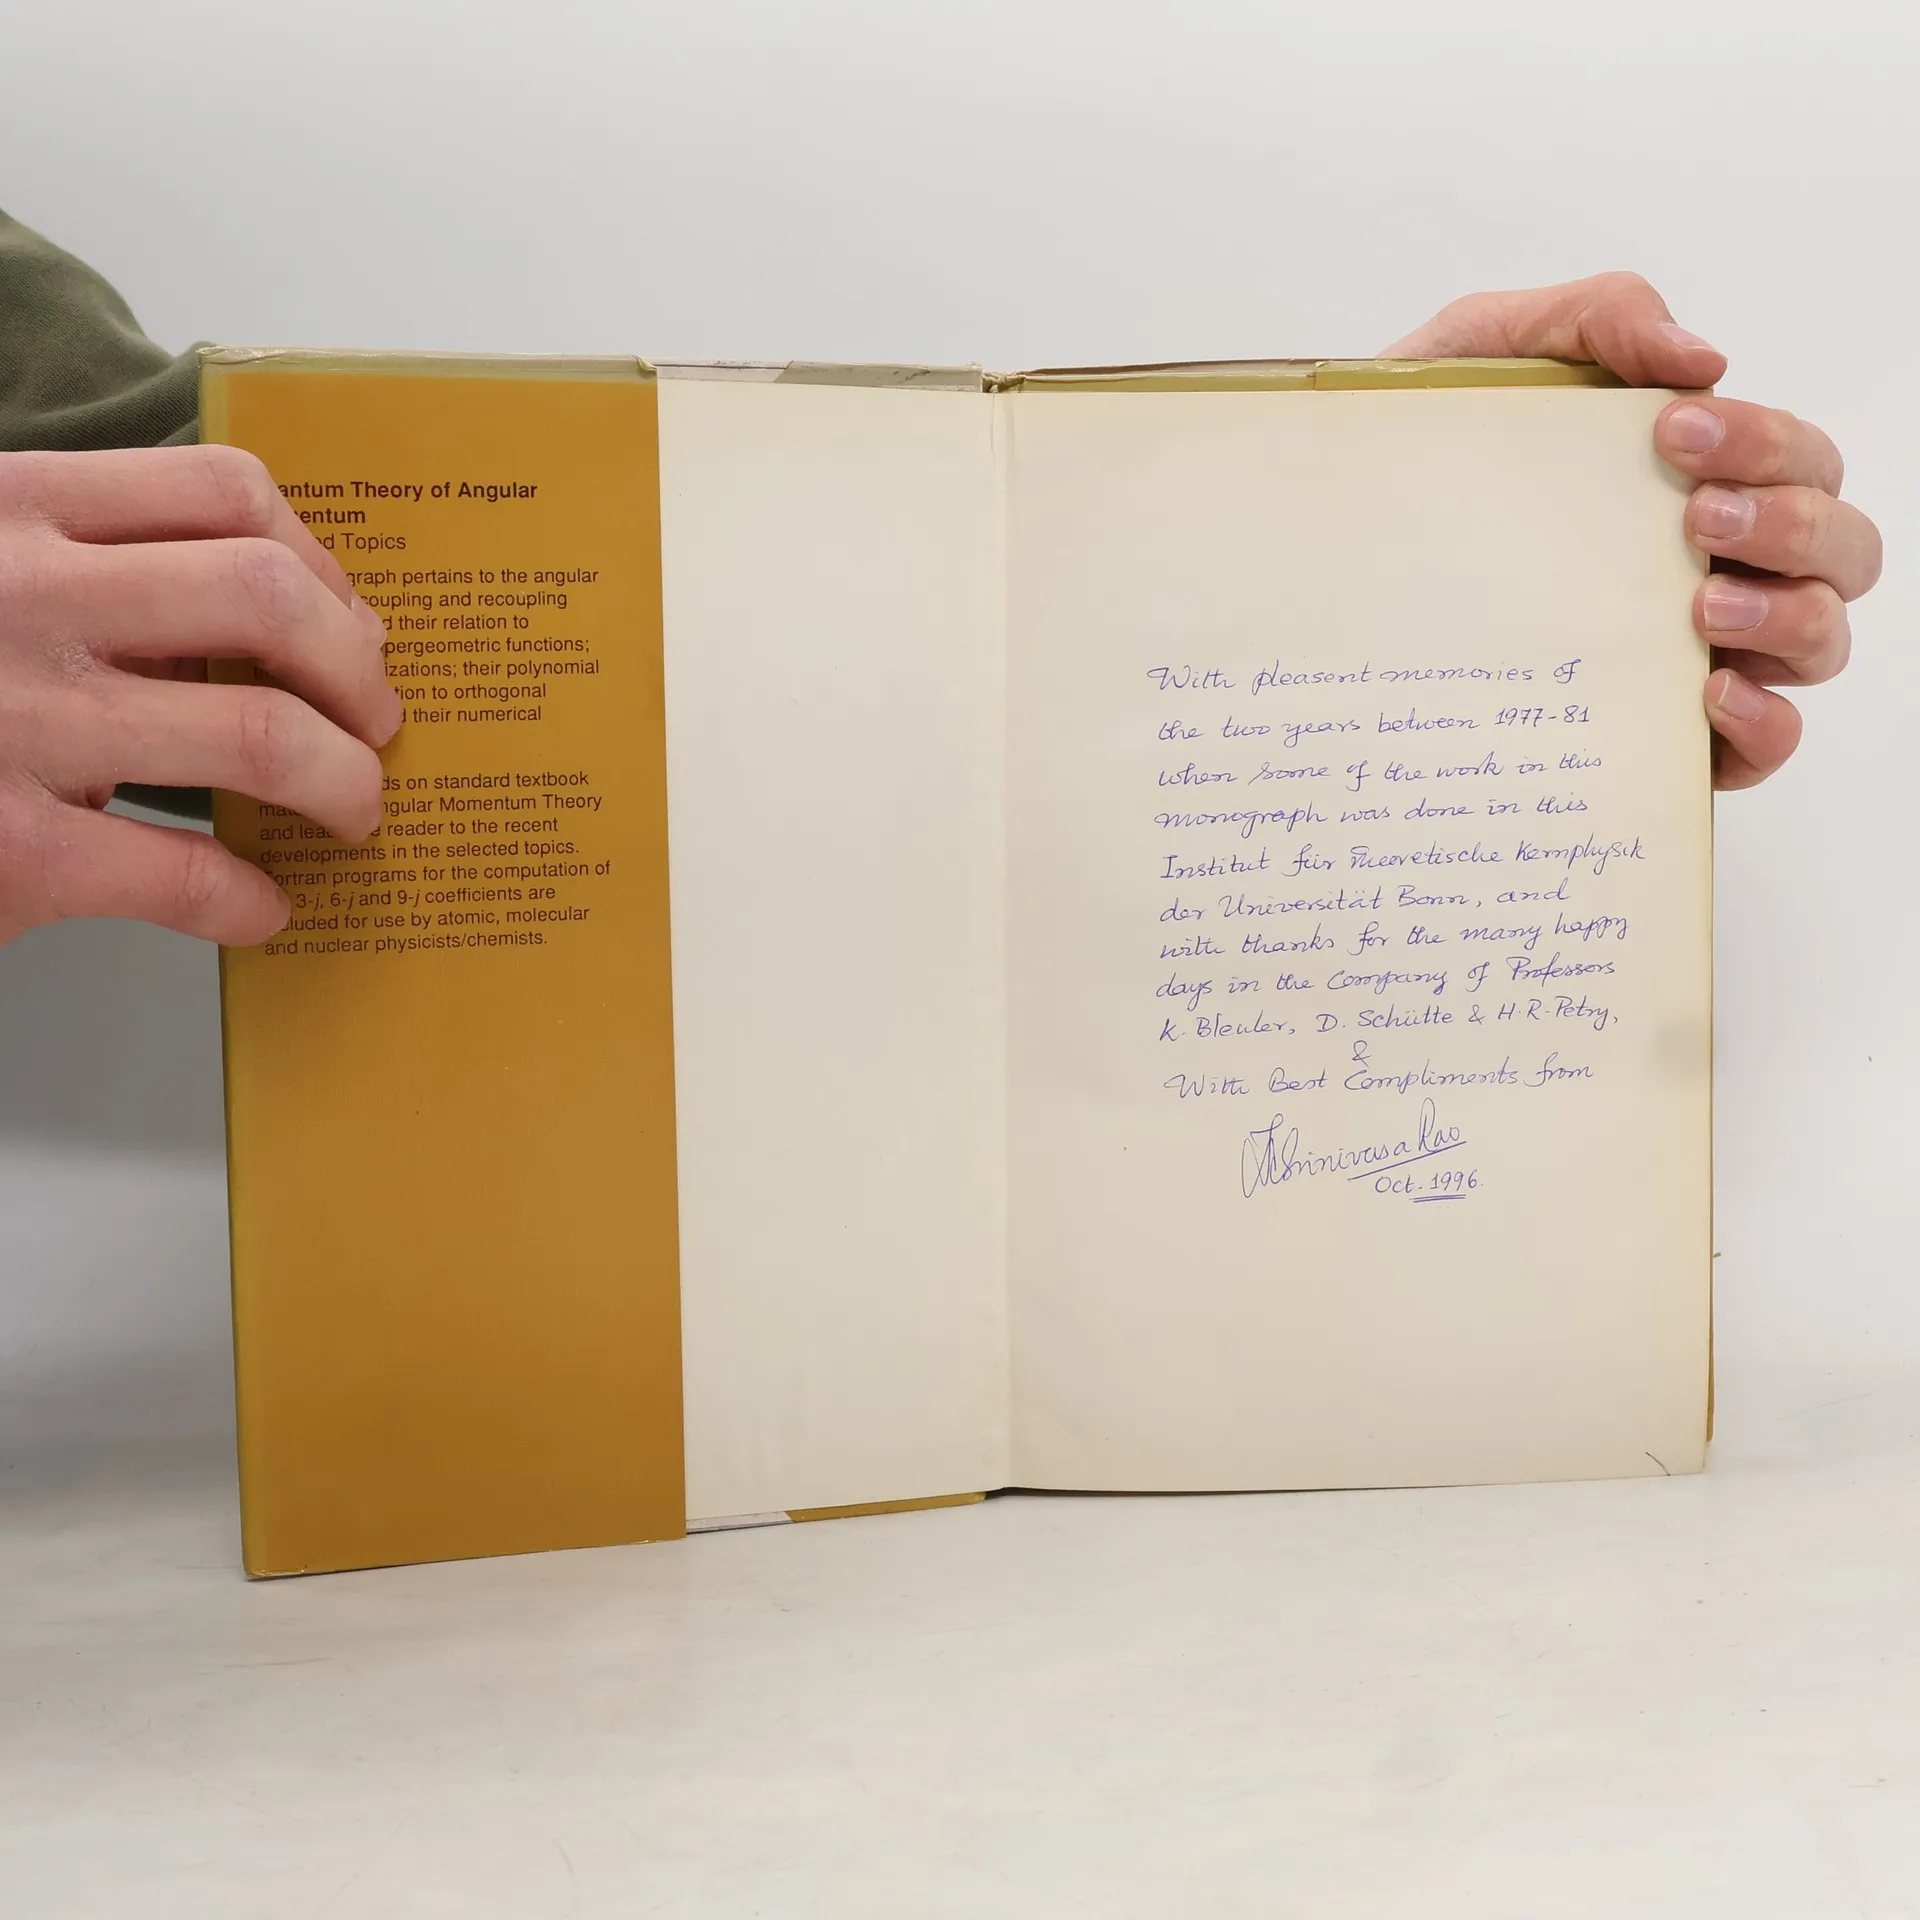 antum Theory of Angular
entum
ed Topics
graph pertains to the angular
coupling and recoupling
d their relation to
pergeometric functions;
izations; their polynomial
tion to orthogonal
d their numerical
ds on standard textbook
mate ngular Momentum Theory
and lead e reader to the recent
developments in the selected topics.
Fortran programs for the computation of
3-j, 6-j and 9-j coefficients are
cluded for use by atomic, molecular
and nuclear physicists/chemists.
With pleasent memories of
the two years between 1977-81
when some of the work in this
monograph was done in this
Institut für Theoretische Kernphysik
der Universität Bonn, and
with thanks for the many happy
days in the Company of Professors
K. Bleuler, D. Schütte & H.R. Petry,
&
With Best Compliments from
KSrinivasa Rao
Oct. 1996.